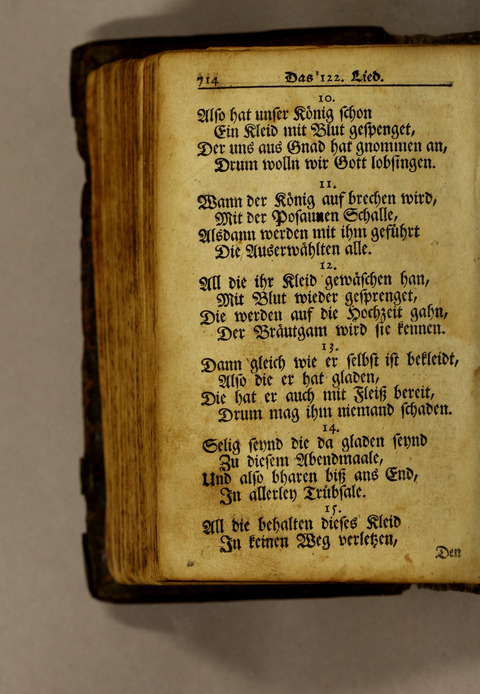 714 Das 122. Lied.
10.
Also hat unser König schon
Ein Kleid mit Blut gespenget,
Der uns aus Gnad hat gnommen an,
Drum wolln wir Gott lobsingen.
11.
Wann der König auf brechen wird,
Mit der Posaunen Schalle,
Alsdann werden mit ihm geführt
Die Auserwählten alle.
12.
All die ihr Kleid gewäschen han,
Mit Blut wieder gesprenget,
Die werden auf die Hochzeit gahn,
Der Bräutgam wird sie kennen.
13.
Dann gleich wie er selbst ist bekleidt,
Also die er hat gladen,
Die hat er auch mit Fleiß bereit,
Drum mag ihm niemand schaden.
14.
Selig seynd die da gladen seynd
Zu diesem Abendmaale,
Und also bharen biß ans End,
In allerley Trübsale.
15.
All die behalten dieses Kleid
In keinen Weg verletzen,
Den